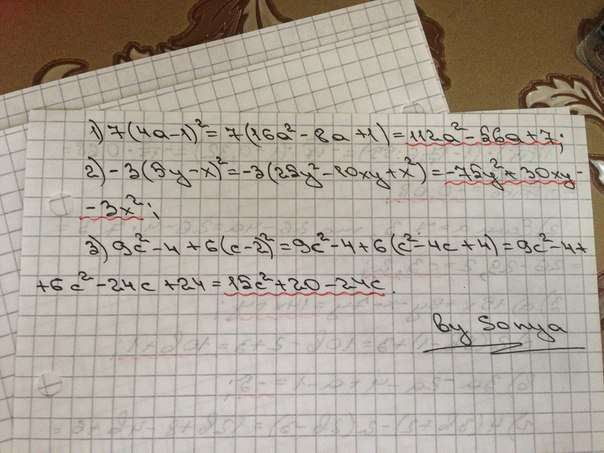 1) 7(4a-1)² = 7(16a² - 8a + 1) = 112a² - 56a + 7;
2) -3(5y-x)² = -3(25y² - 10xy + x²) = -75y² + 30xy -
- 3x²;
3) 9c² - 4 + 6(c-2)² = 9c² - 4 + 6(c² - 4c + 4) = 9c² - 4 +
+ 6c² - 24c + 24 = 15c² + 20 - 24c.
by Sonya